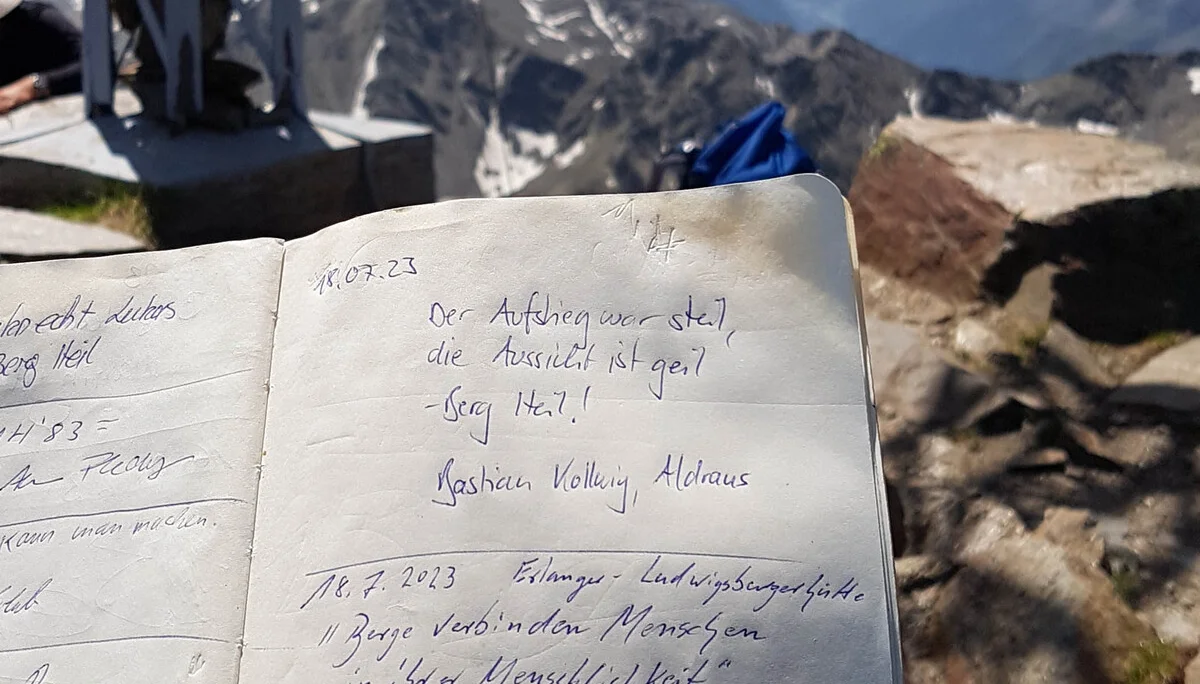 Lukas
Berg Heil
H'83 =
kann man machen.
18.07.23
Der Aufstieg war steil,
die Aussicht ist geil
-Berg Heil!
Bastian Kollwig, Aldrans
18.7.2023 Erlanger- Ludwigsburgerhütte
"Berge verbinden Menschen
in ihrer Menschlichkeit"